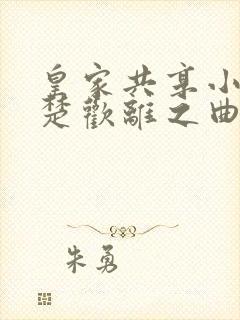 皇家共享小
楚歡離之曲
朱勇